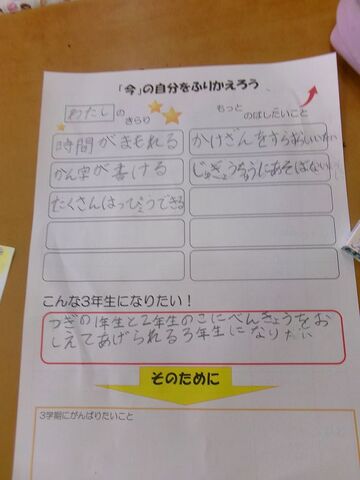 「今」の自分をふりかえろう
わたし の きらり
もっと のばしたいこと
時間がまもれる
かけざんをすらすらいいたい
かん字が書ける
じゅぎょうちゅうにあそばない
たくさんはっぴょうできる
こんな3年生になりたい!
つぎの1年生と2年生のこにべんきょうをお
しえてあげられる3年生になりたい
そのために
3学期にがんばりたいこと